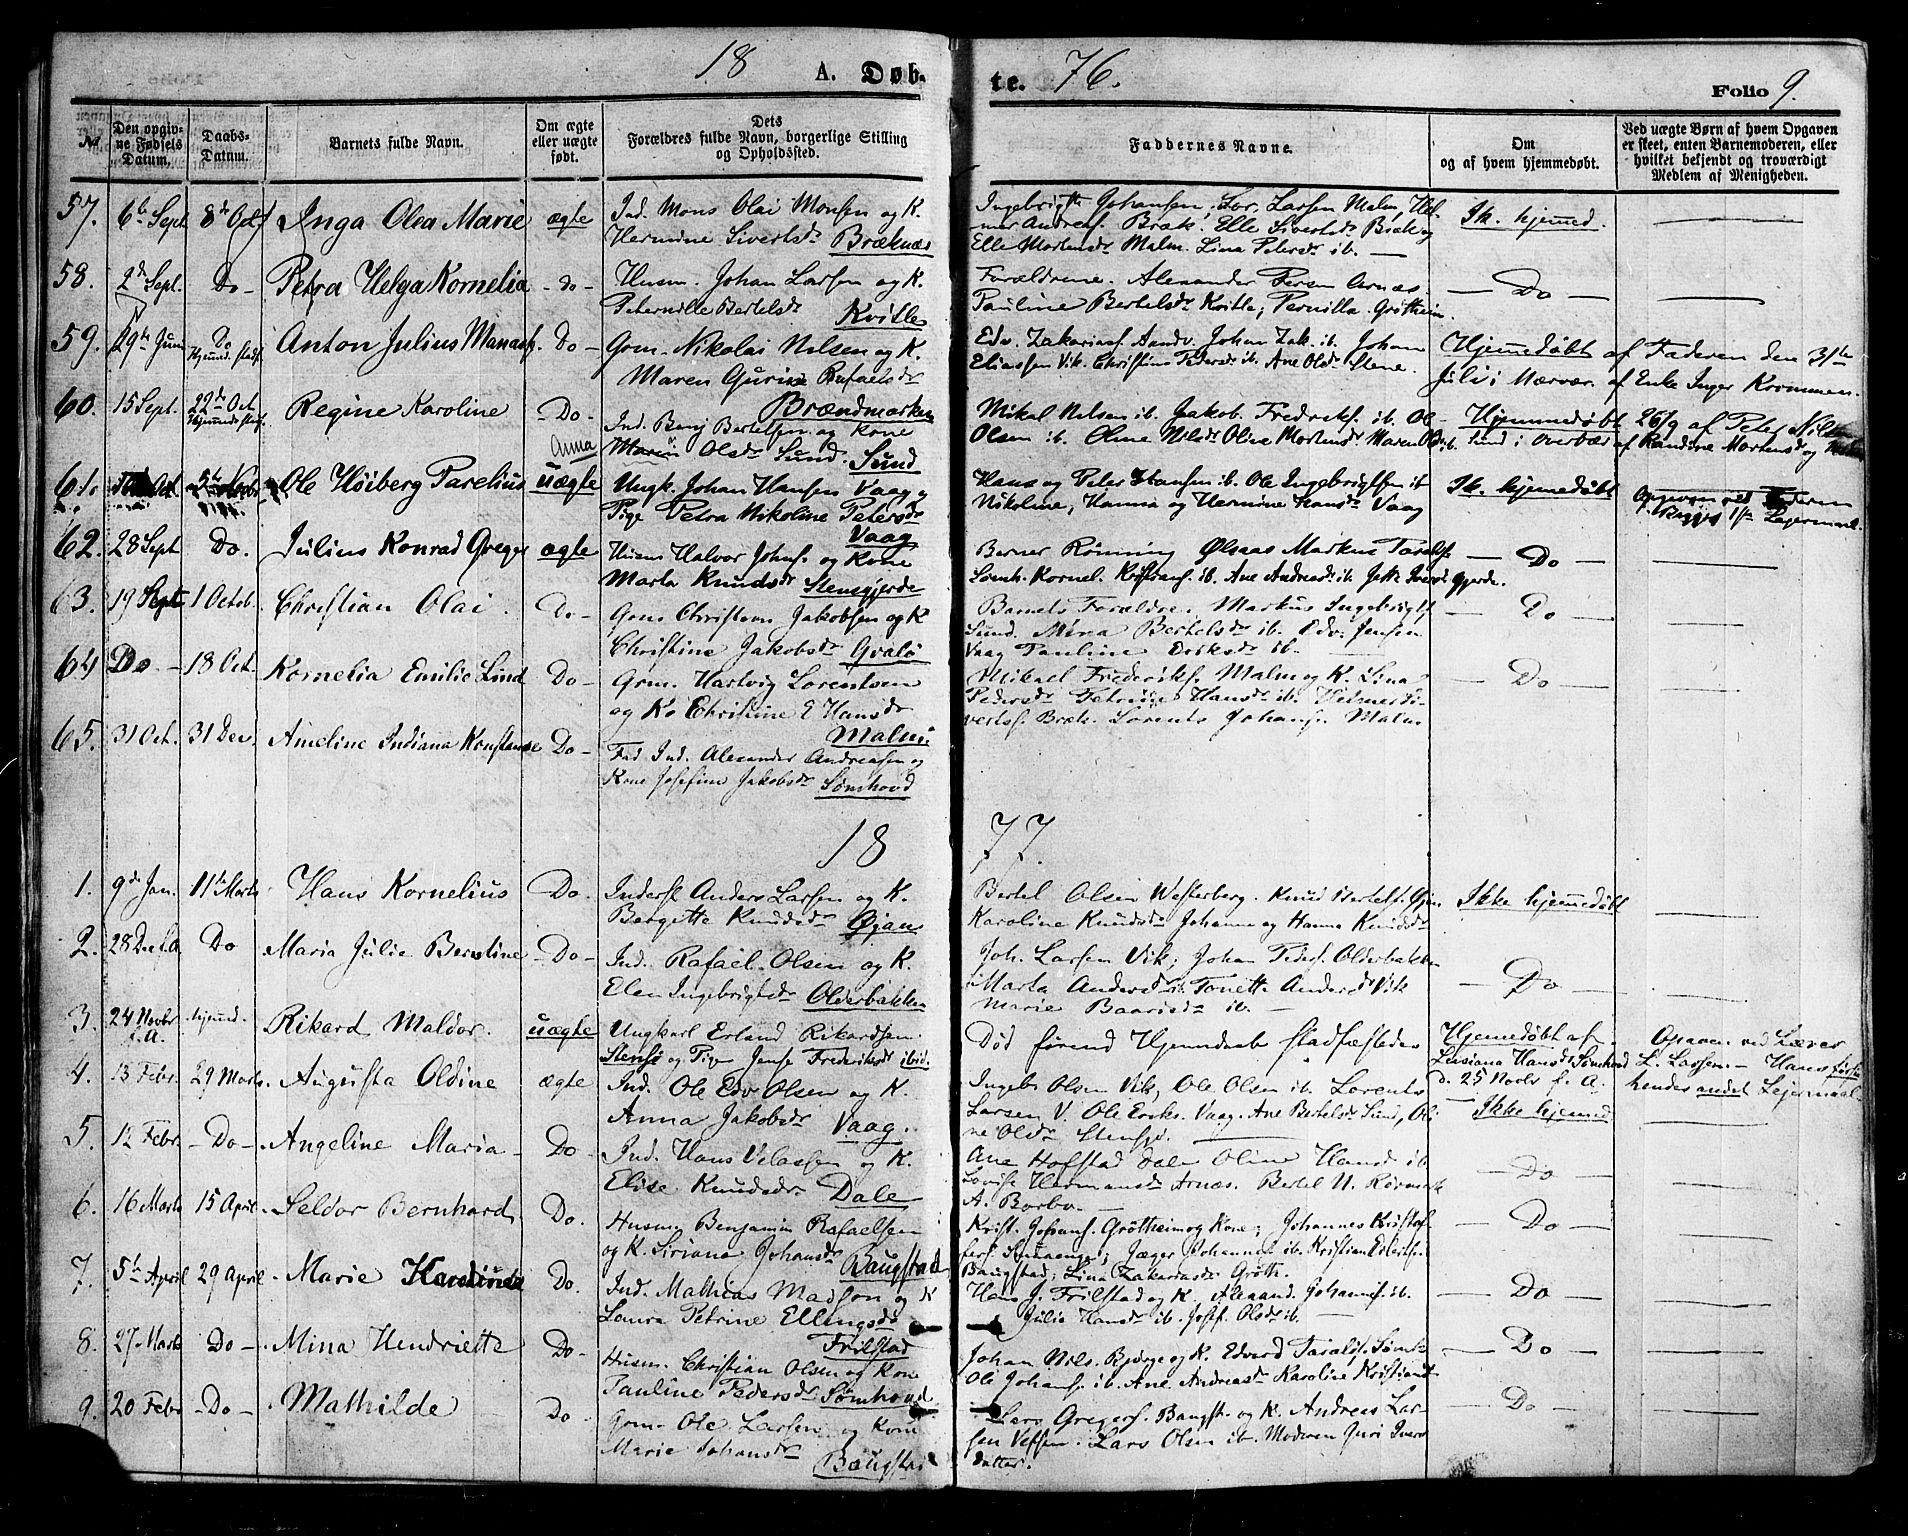 18 A. Døb- te. 76. Folio 9.
No
Den opgiv-
ne Fødsels
Datum.
Daabs-
Datum.
Barnets fulde Navn.
Om ægte
eller uægte
født.
Dets
Forældres fulde Navn, borgerlige Stilling
og Opholdssted.
Faddernes Navne.
Om
og af hvem hjemmedøbt.
Ved uægte Børn af hvem Opgaven
er skeet, enten Barnemoderen, eller
hvilket bekjendt og troværdigt
Medlem af Menigheden.
57. 6te Sept 8de Oct Inga Olea Marie ægte Ind. Mons Olai Monsen og K.
Hermine Sivertsdr Bræknæs
Ingebrigt Johansen, Lor. Larsen Malm, Hel-
mer Andreas. Bræk. Elle Sivertsdr Bræk og
Elle Mortensdr Malm. Lina Petersdr ib.
Ik. hjemed.
58. 2de Sept. Do Petra Helga Kornelia do Husm. Johan Larsen og K.
Peternille Bertelsdr Kvitle
Forældrene. Alexander Persen Arnæs.
Pauline Bertelsdr Kvitle, Pernilla Grøtheim.
Do
59. 29de Juni Do Hjemd. stadf. Anton Julius Manasse. Do Grm. Nikolai Nilsen og K.
Maren Gurine Rafaelsdr
Brændmarken
Edv. Zakarias. Aandv. Johan Zak. ib. Johan
Eliassen Vik. Christine Pedersdr ib. Ane Olsdr Stene.
Hjemmedøbt af Faderen den 31te
Juli i Nærvær. af Enke Inger Krommen.
60. 15 Sept. 22de Oct Hjemd. stadf. Regine Karoline Do Ind. Benj Bertelsen og Kone
Anna
Maren Olsdr Sund. Sund
Mikal Nilsen ib. Jakob. Fredriks. ib. Ol-
Olsen ib. Oline Nilsdr Olina Mortensdr Maren Olsdr ib.
Hjemmedøbt 26/9 af Peter Nils
Sund i Overvær af Randine Mortensdr og
61. Ole Høiberg Parelius uægte Ungk. Johan Hansen Vaag og
Pige Petra Nikoline Petersdr
Vaag
Hans og Peter Hansen ib. Ole Ingebrigtsen ib
Nikoline, Hanna og Hermine Hansdr Vaag
Ik. hjemedøbt
Opgiven ved Faderen
Begges 1ste Lejermaal.
62. 28 Sept Do. Julius Konrad Greger ægte Husm Halvor Johns. og Kone
Marta Knudsdr Stensgjerde
Berner Rønning Ølsaas Markus Taralds.
Sømh. Kornel. Kristians. ib. Ane Andreasdr ib. Jette Iversdr gjerde.
Do
63. 19 Sept 1 Octob. Christian Olai. Do Grm Christen Jakobsen og K
Christine Jakobsdr Gvalø
Barnets Forældre. Markus Ingebrigts.
Sund. Mina Bertelsdr ib. Edv. Jensen
Vaag Pauline Eriksdr ib.
Do
64 Do 18 Oct. Kornelia Emilie Lind Do Grm. Hartvig Lorentsen
og Ko Christine E Hansdr
Malm
Mikael Frederiks. Malm og K. Lina
Pedersdr Petrine Hansdr ib. Helmer Si-
verts. Bræk. Lorents Johans. Malm
Do
65. 31 Oct. 31 Dec. Ameline Indiana Konstanse Do Fad Ind. Alexander Andreasen og
Kone Josefine Jakobsdr Sømhovd
18 77
1. 9de Jan. 11te Marts Hans Kornelius Do. Inderst Anders Larsen og K.
Bergette Knudsdr Øjan
Bertel Olsen Westerberg. Knud Bertels. Øjan
Karoline Knudsdr Johanne og Hanna Knudsdr
Ikke hjemedøbt
2. 28 Dec f. A. Do Maria Julie Berntine Do Ind. Rafael Olsen og K.
Elen Ingebrigtsdr Olderbakken
Joh. Larsen Vik, Johan Peders. Olderbakken
Marta Andersdr ib Tonette Andersdr Vik
Marie Baardsdr ib.
Do
3. 24 Novbr f. A. hjemd. Rikard Maldor. uægte Ungkarl Erland Rikardsen
Stensø og Pige Jense Frederiksdr ibid.
Død førend Hjemmedaab stadfæstedes
Hjemedøbt af
Lusiana Hansdr Sømhovd
d. 25 Novbr f. A.
Opgiven ved Lærer
L. Larsen. Hans første
hendes andet Lejermaal.
4. 13 Febr. 29 Marts Augusta Oldine ægte Ind. Ole Edv Olsen og K.
Anna Jakobsdr Vaag.
Ingeb. Olsen Vik, Ole Olsen ib. Lorents
Larsen V. Ole Eriks. Vaag. Ane Bertelsdr Sund, Oli-
ne Olsdr Stensø.
Ikke hjemed
5. 12 Febr. Do Angeline Maria Do Ind. Hans Velassen og K.
Elise Knudsdr Dale
Ane Hofstad Dale Oline Hansdr ib
Lovise Hermansdr Arnæs. Bertel N. Rørmark
A. Borbo.
Do
6. 16 Marts 15 April Seldor Bernhard Do. Husm Benjamin Rafaelsen
og K. Siriane Johansdr Baugstad
Krist. Johans. Grøtheim og Kone; Johannes Kristof-
fers. ; Jæger Johannes. ib. Kristian Erlends.
Baugstad; Lina Zakariasdr Grøth.
Do
7. 5te April 29 April Marie Do. Ind. Mathias Madsen og K
Laura Petrine Ellingsdr
Frilstad
Hans J. Frilstad og K. Alexand. Johannes. ib.
Julie Hansdr ib. Josef. Olsdr ib.
Do
8. 27 Marts Do Mina Hendriette Do Husm. Christian Olsen og Kone
Pauline Pedersdr Sømhovd
Johan Nils. Bjørge og K. Edvard Taralds. Sømh.
Ole Johans. ib. Ane Andreasdr Karoline Kristiansdr
Do
9. 20 Febr Do Mathilde Do Grm. Ole Larsen og Kone
Marie Johansdr
Baugstad
Lars Gregers. Baugst. og K. Andreas Lar-
sen Vefsen. Lars Olsen ib. Moderen Guri Ivers
datter.
Do